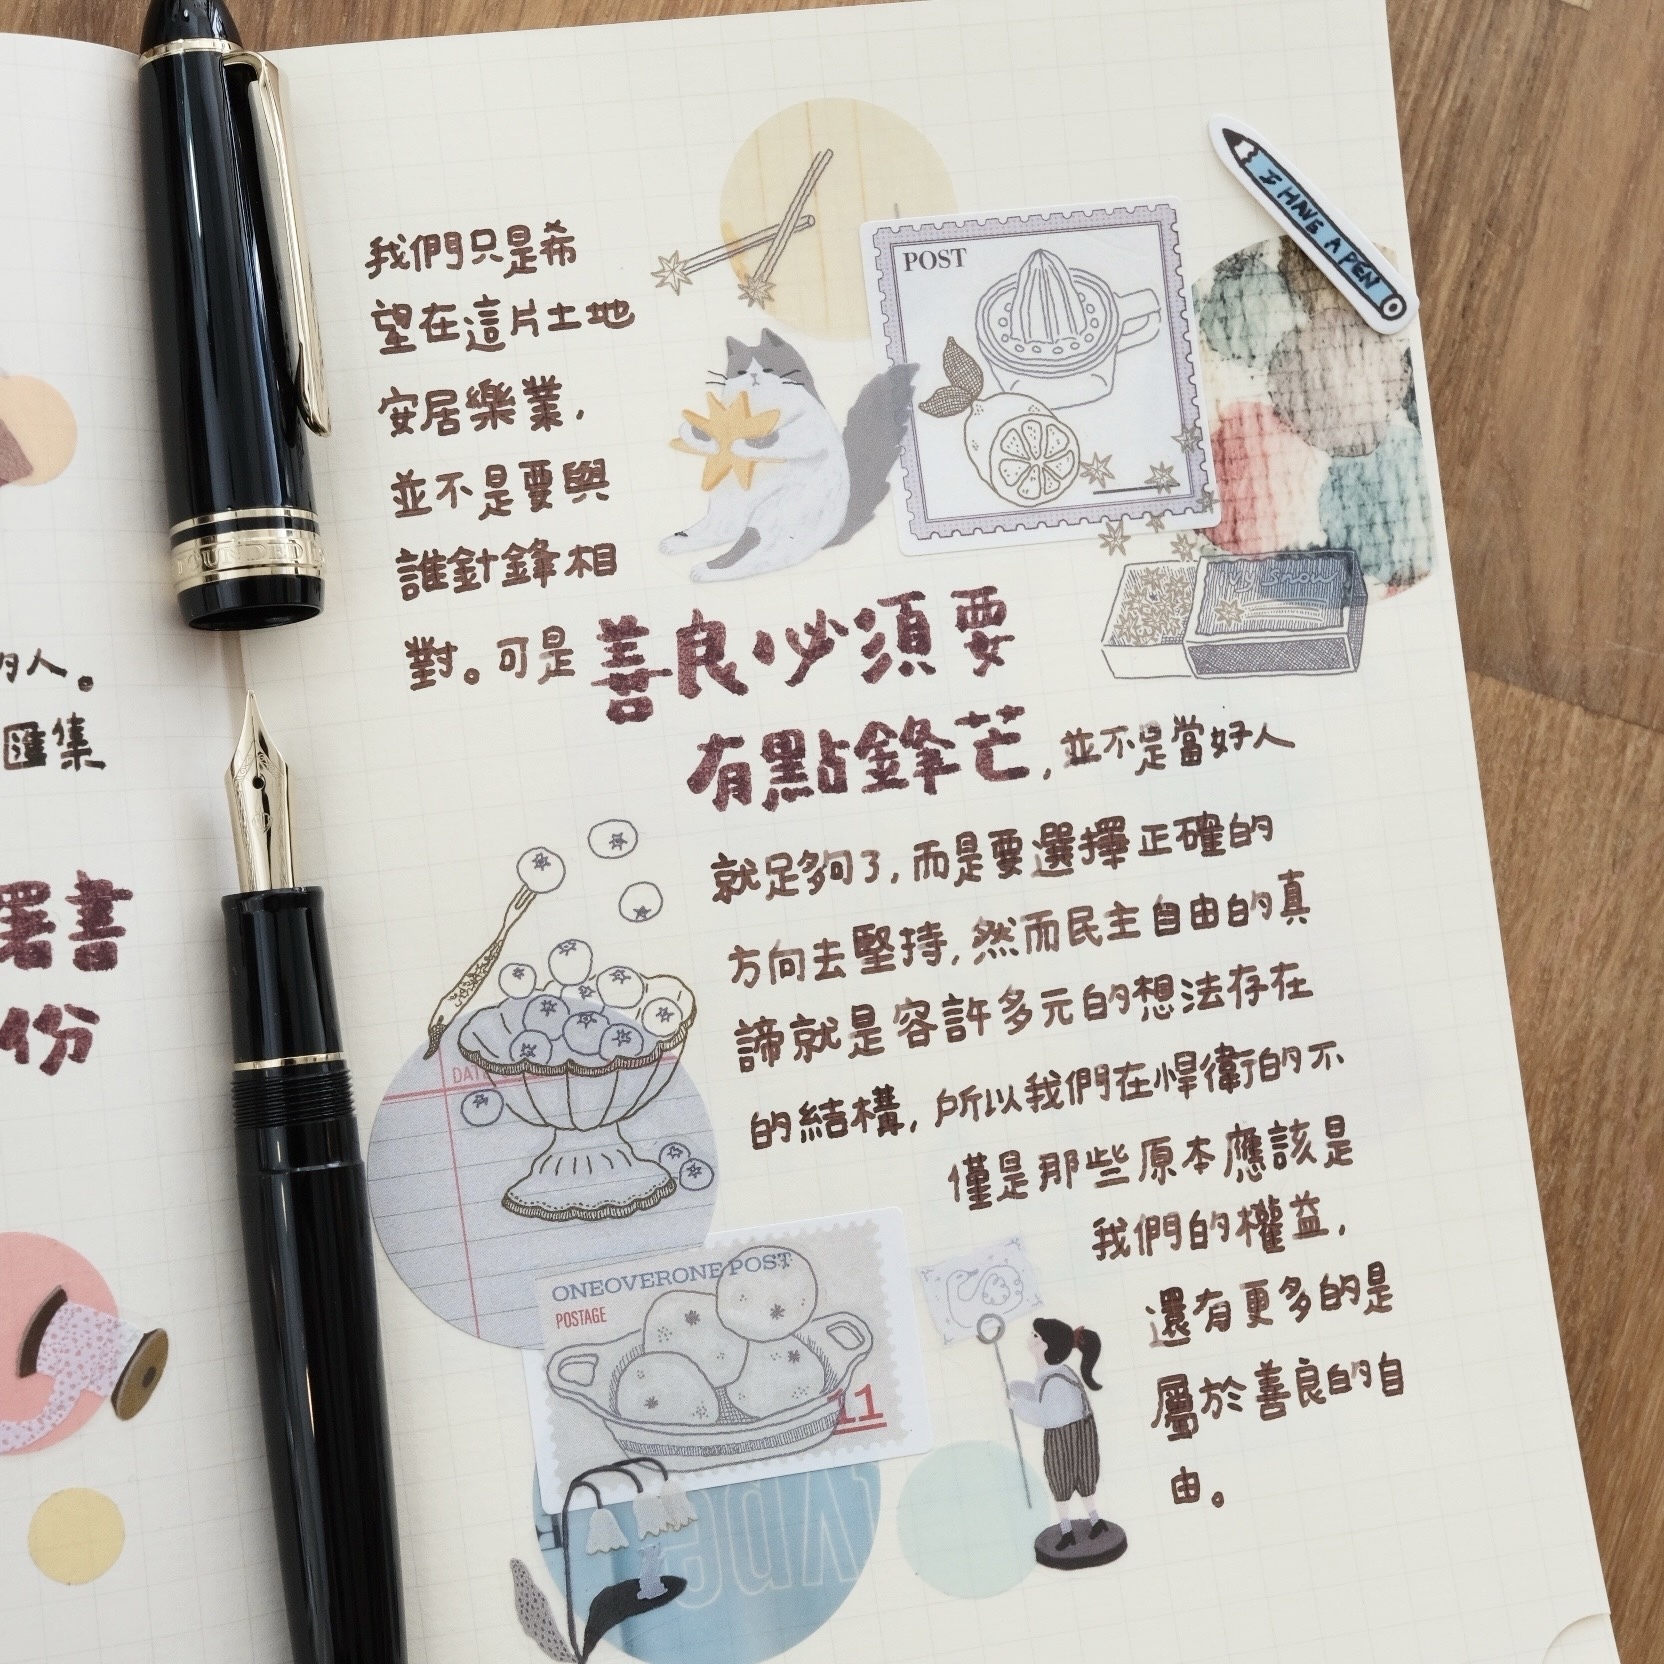 的人。
匯集
署書
份
我們只是希
望在這片土地
安居樂業,
並不是要與
誰針鋒相
對。可是善良必須要
有點鋒芒,並不是當好人
就足夠了,而是要選擇正確的
方向去堅持,然而民主自由的真
諦就是容許多元的想法存在
的結構,所以我們在悍衛的不
僅是那些原本應該是
我們的權益,
還有更多的是
屬於善良的自
由。
POST
I HAVE A PEN
My snow
DATE
ONEOVERONE POST
POSTAGE
11